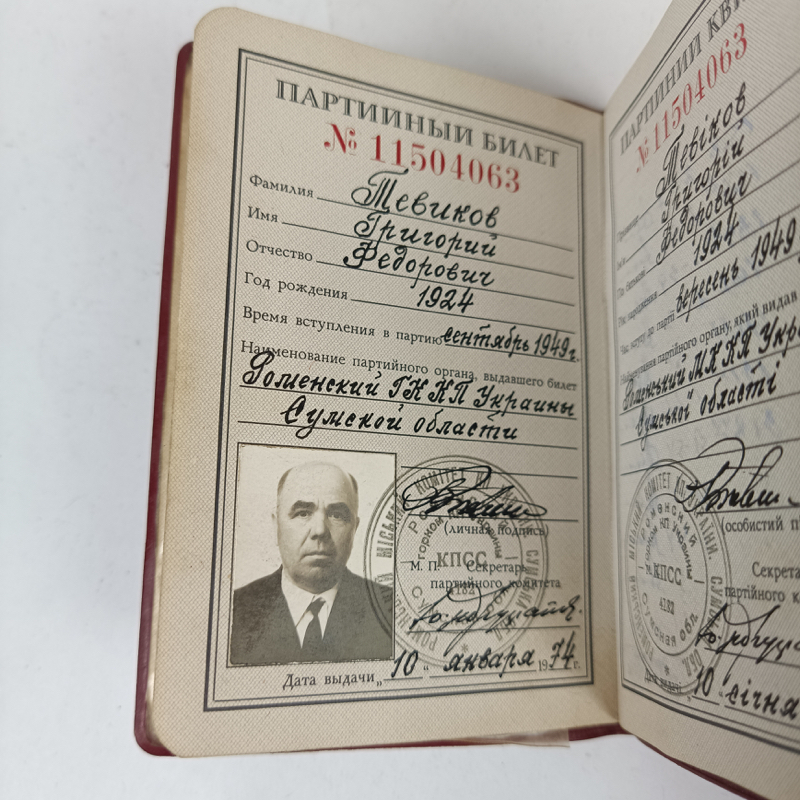 ПАРТИЙНЫЙ БИЛЕТ
№ 11504063
Фамилия Тевиков
Имя Григорий
Отчество Федорович
Год рождения 1924
Время вступления в партию сентябрь 1949 г.
Наименование партийного органа, выдавшего билет
Роменский ГК КП Украины
Сумской области
(личная подпись)
М. П. Секретарь
партийного комитета
Дата выдачи „10“ января 1974 г.
РОМЕНСЬКИЙ МІСЬКИЙ КОМІТЕТ КП УКРАЇНИ. СУМСЬКА ОБЛ.
КПСС
4182
ПАРТІЙНИЙ
№ 11504063
Тевіков
Григорій
Федорович
1924
Час вступу до партії вересень 1949
партійного органу, який видав
Роменський МК КП
Сумської області
(особистий
Секрета
партійного к
КПСС
4182
Дата видачі „10“ січня